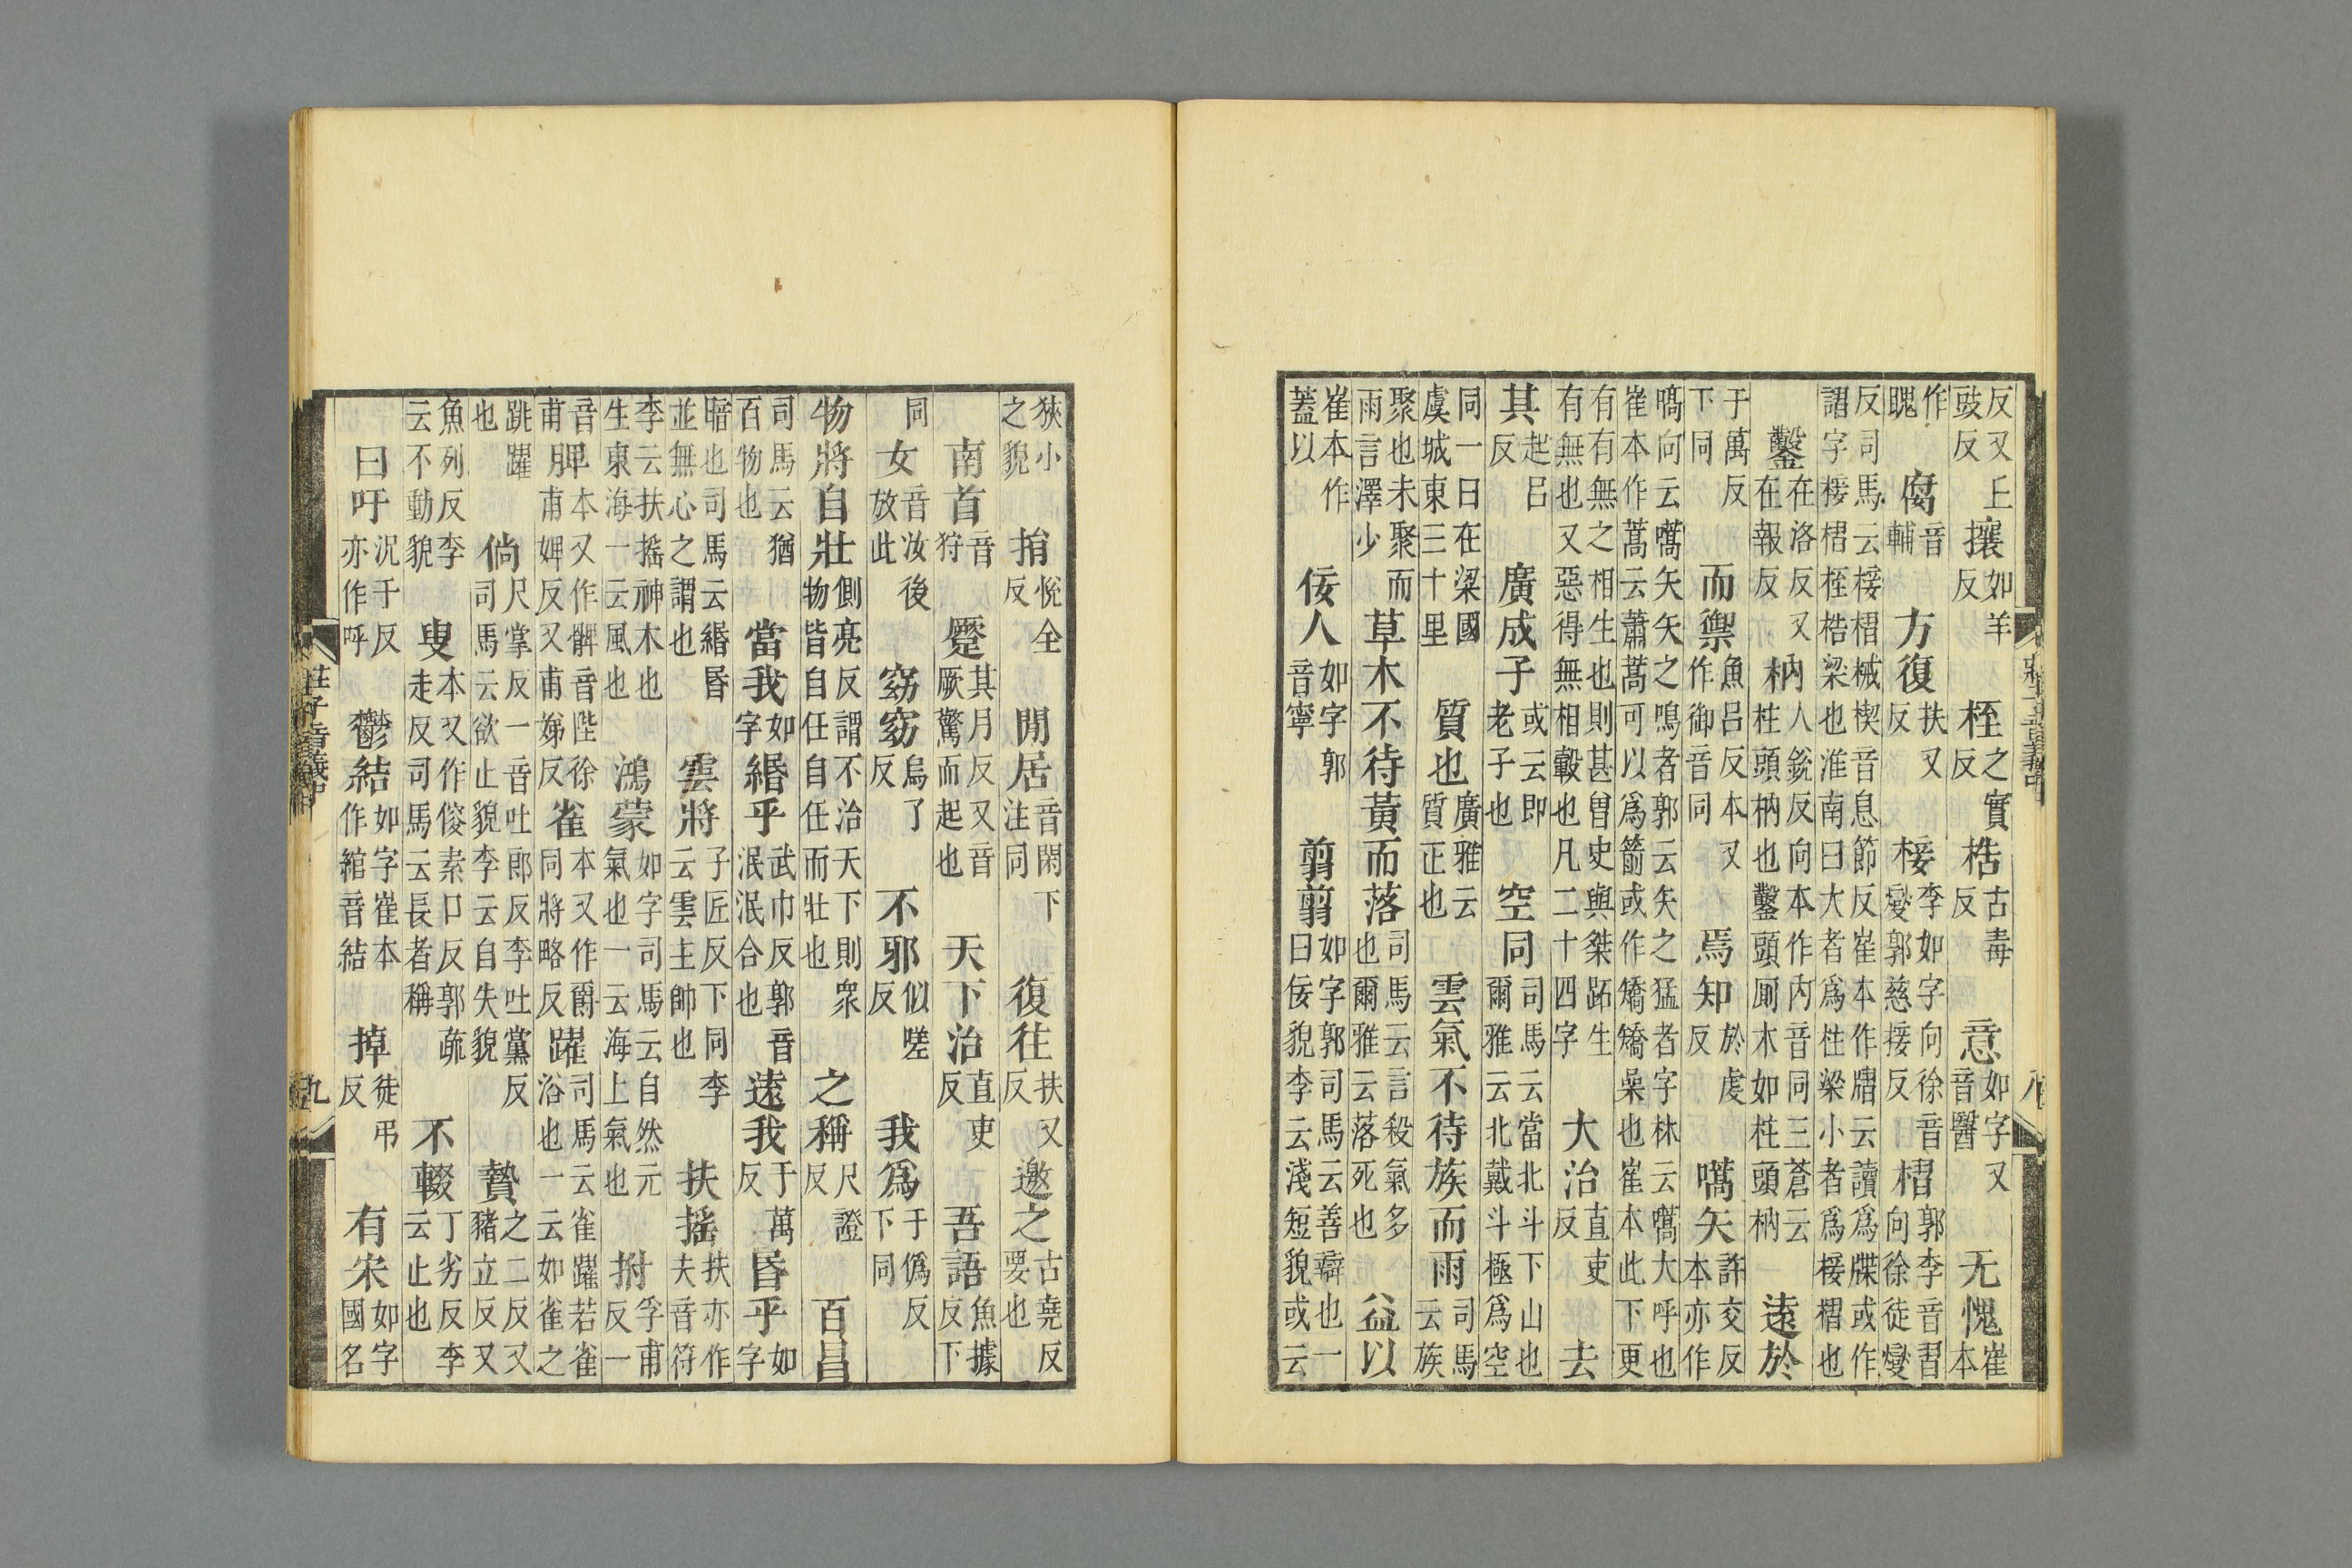 反又上豉反攘如羊反桎之實反梏古毒反意如字又音醫无愧崔本
作聭腐音輔方復扶又反椄李如字向徐音燮郭慈接反槢郭李音習向徐徒燮
反司馬云椄槢械楔音息節反崔本作云讀爲牒或作謂字椄槢桎梏梁也淮南曰大者爲柱梁小者爲椄槢也
鑿在洛反又在報反枘人銳反向本作內音同三蒼云柱頭枘也鑿頭厠木如柱頭枘遠於
于萬反下同而禦魚呂反本又作御音同焉知於虔反嚆矢許交反本亦作
嗃向云嚆矢矢之鳴者郭云矢之猛者字林云嚆大呼也崔本作蒿云蕭蒿可以爲箭或作矯矯喿也崔本此下更
有有無之相生也則甚曽史與桀跖生有無也又惡得無相轂也凡二十四字大治直吏反去
其起呂反廣成子或云即老子也空同司馬云當北斗下山也爾雅云北戴斗極爲空
同一曰在梁國虞城東三十里質也廣雅云質正也雲氣不待族而雨司馬云族
聚也未聚而雨言澤少草木不待黃而落司馬云言殺氣多也爾雅云落死也益以
崔本作蓋以佞人如字郭音寧翦翦如字郭司馬云善辯也一曰佞貌李云淺短貌或云
莊子音義中
八
狹小之貌捐悅全反閒居音閑下注同復往扶又反邀之古堯反要也
南首音狩蹷其月反又音厥驚而起也天下治直吏反吾語魚據反下
同女音汝後放此窈窈烏了反不邪似嗟反我爲于僞反下同
物將自壯側亮反謂不治天下則衆物皆自任自任而壯也之稱尺證反百昌
司馬云猶百物也當我如字緡乎武巾反郭音泯泯合也遠我于萬反昏乎如字
暗也司馬云緡昏並無心之謂也雲將子匠反下同李云雲主帥也扶搖扶亦作夫音符
李云扶搖神木也生東海一云風也鴻蒙如字司馬云自然元氣也一云海上氣也拊孚甫反一
音甫脾本又作髀音陛徐甫婢反又甫娣反雀本又作爵同將略反躍司馬云雀躍若雀浴也一云如雀之
跳躍也倘尺掌反一音吐郎反李吐黨反司馬云欲止貌李云自失貌贄之二反又豬立反又
魚列反李云不動貌叟本又作傁素口反郭疏走反司馬云長者稱不輟丁劣反李云止也
曰吁況于反亦作呼鬱結如字崔本作綰音結掉徒弔反有宋如字國名
莊子音義中
九